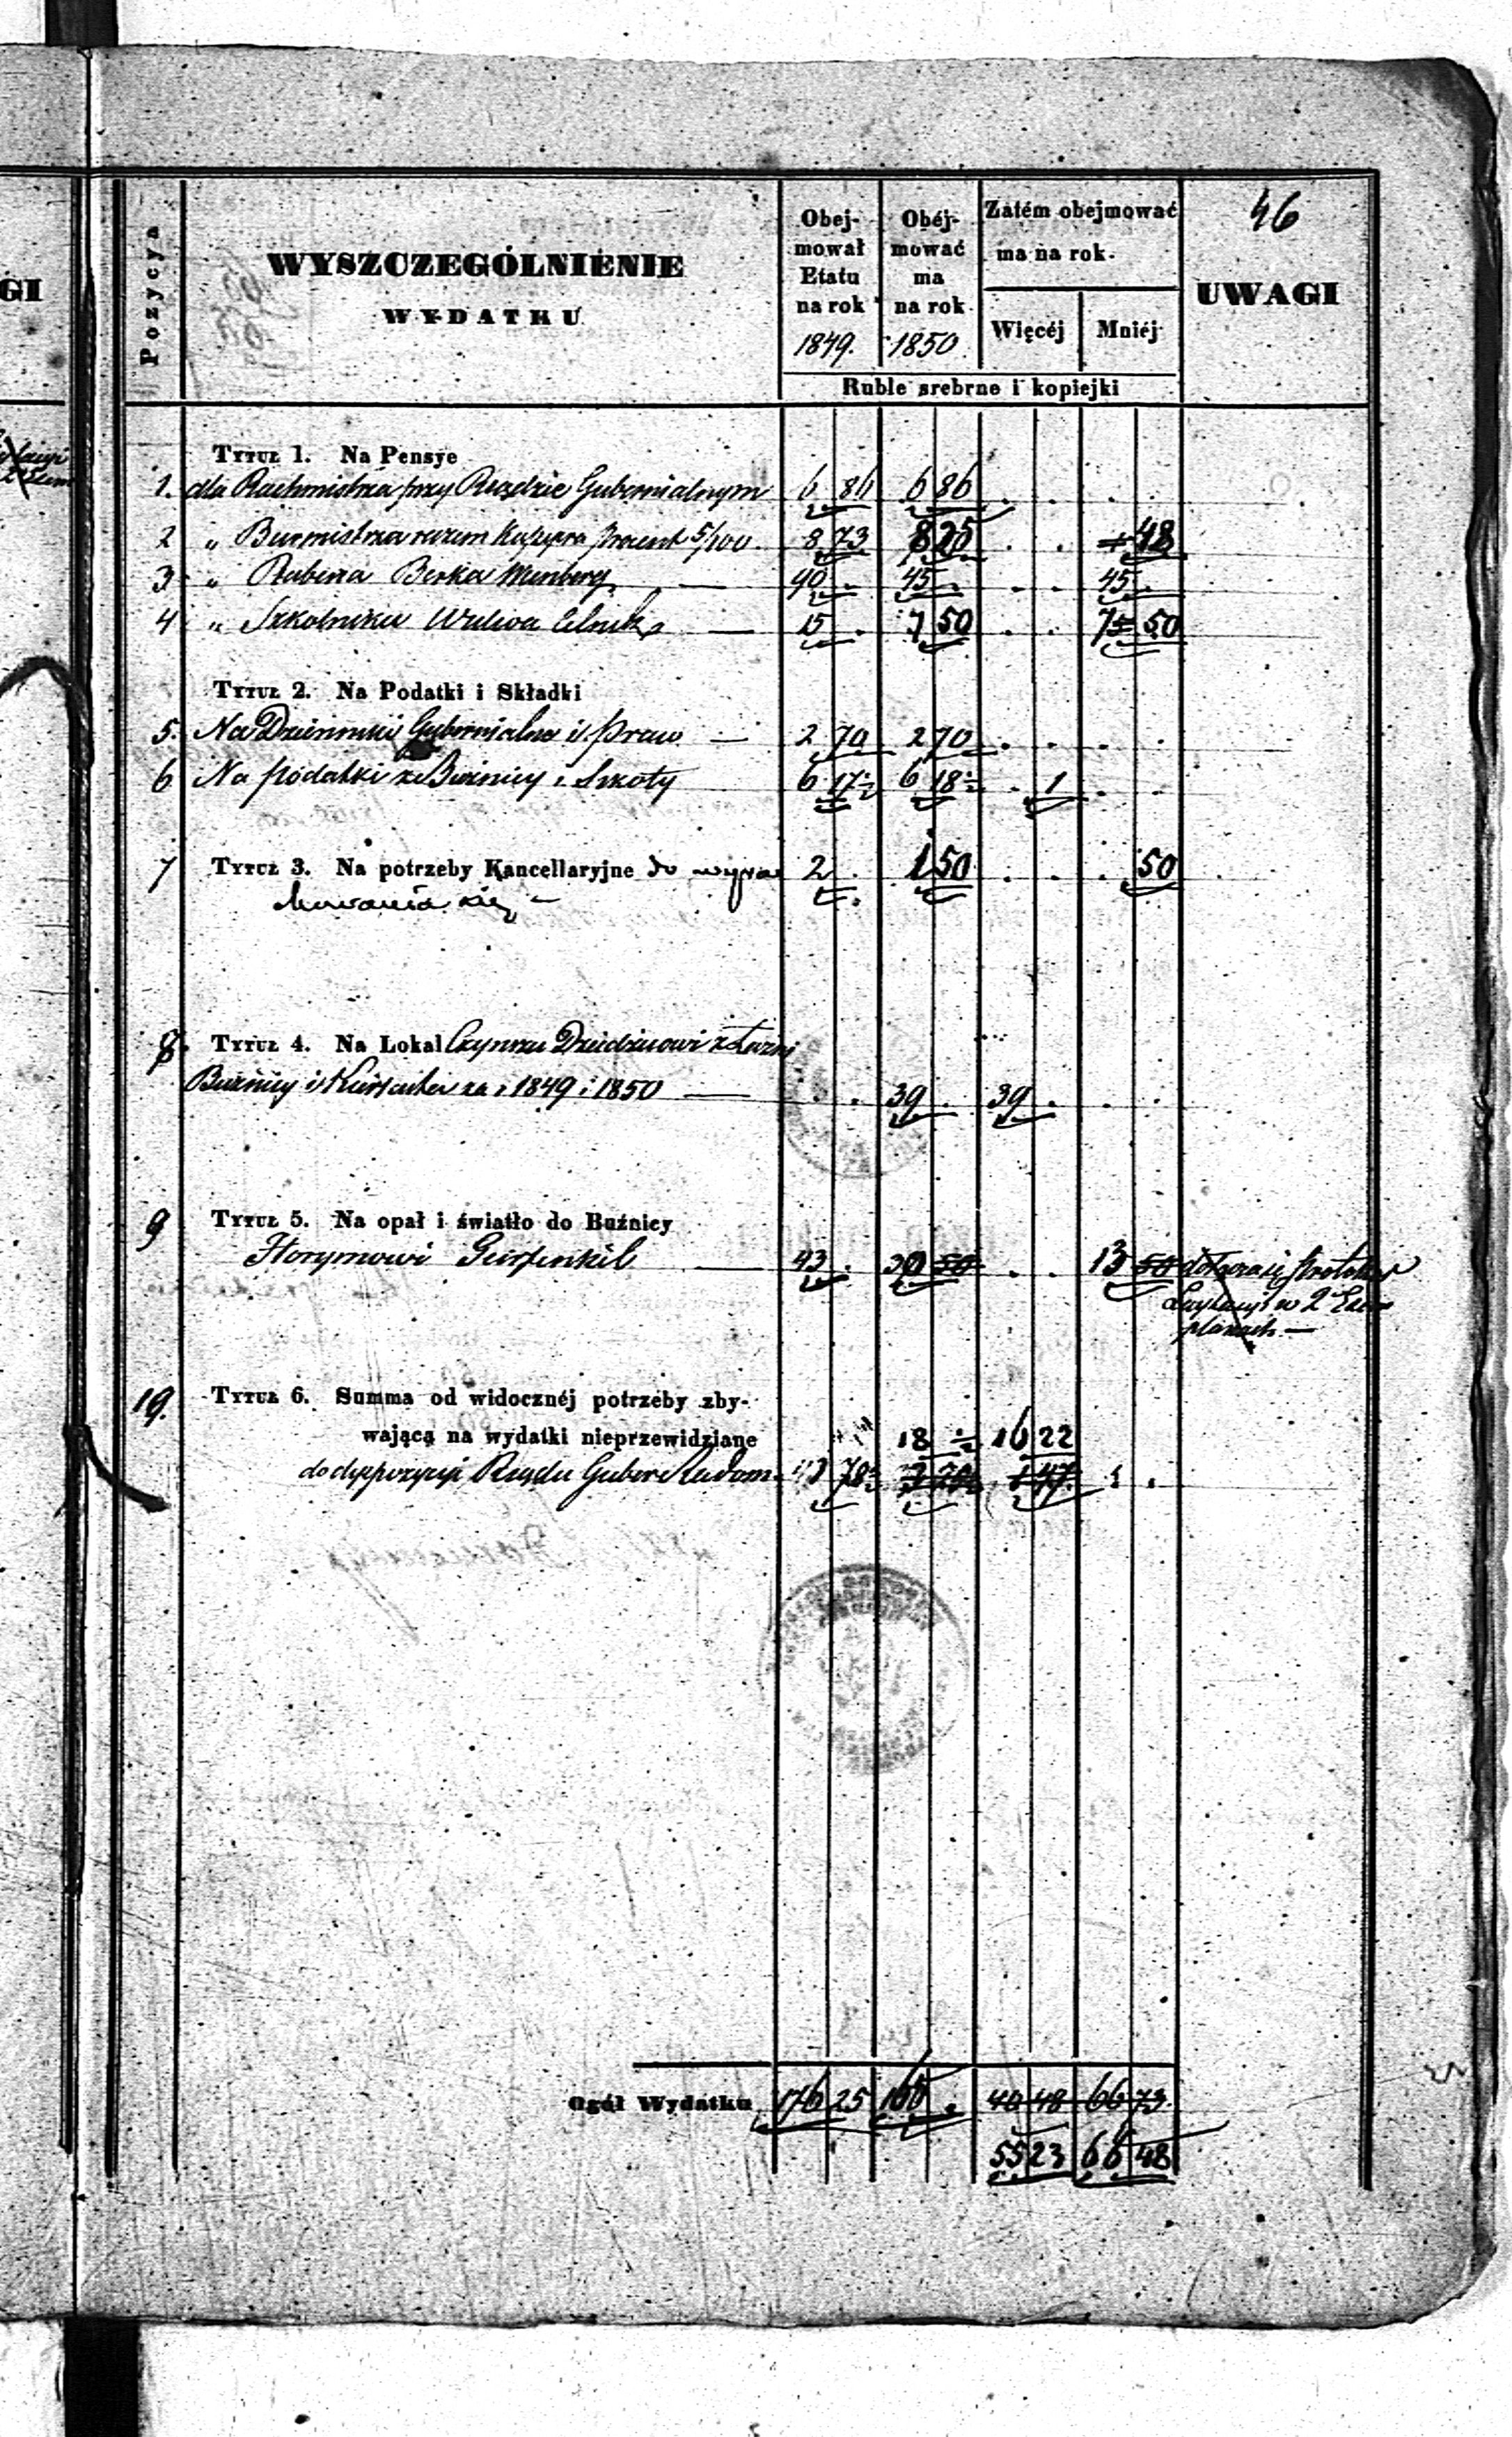 46
Pozycya
WYSZCZEGÓLNIENIE
WYDATKU
Obej-
mował
Etatu
na rok
1849.
Obéj-
mować
ma
na rok
1850
Zatém obejmować
ma na rok
Więcéj
Mniéj
UWAGI
Ruble srebrne i kopiejki
GI
Tytuł 1. Na Pensye
1. dla Rachmistrza przy Rządzie Gubernialnym 6 86 6 86 . . . .
2 „ Burmistrza razem procent 5/100 8 73 8 25 . . 48
3 „ Rabina Berka 40 . 45 . . . 45 .
4 „ Szkolnika 15 . 7 50 . . 7 50
Tytuł 2. Na Podatki i Składki
5. Na Dzienniki Gubernialne i Praw — 2 70 2 70 . . . .
6 Na podatki z Bóżnicy i Szkoły 6 17½ 6 18½ . 1 . .
7 Tytuł 3. Na potrzeby Kancellaryjne do wyra 2 . 1 50 . . . 50
chowania się —
8. Tytuł 4. Na Lokal Czynszu Dziedzicowi z Łazni
Buźnicy i Kirkuta za r 1849 i 1850 — . . 39 . 39 . . .
9 Tytuł 5. Na opał i światło do Buźnicy
43 . 30 50 . . 13 50
w 2
planach —
10. Tytuł 6. Summa od widocznéj potrzeby zby-
wającą na wydatki nieprzewidziane 18 ½ 16 22
do dyspozycyi Rządu Guber Radom 78½ 1 47 . .
Ogół Wydatku 176 25 165 . 40 48 66 73
55 23 66 48